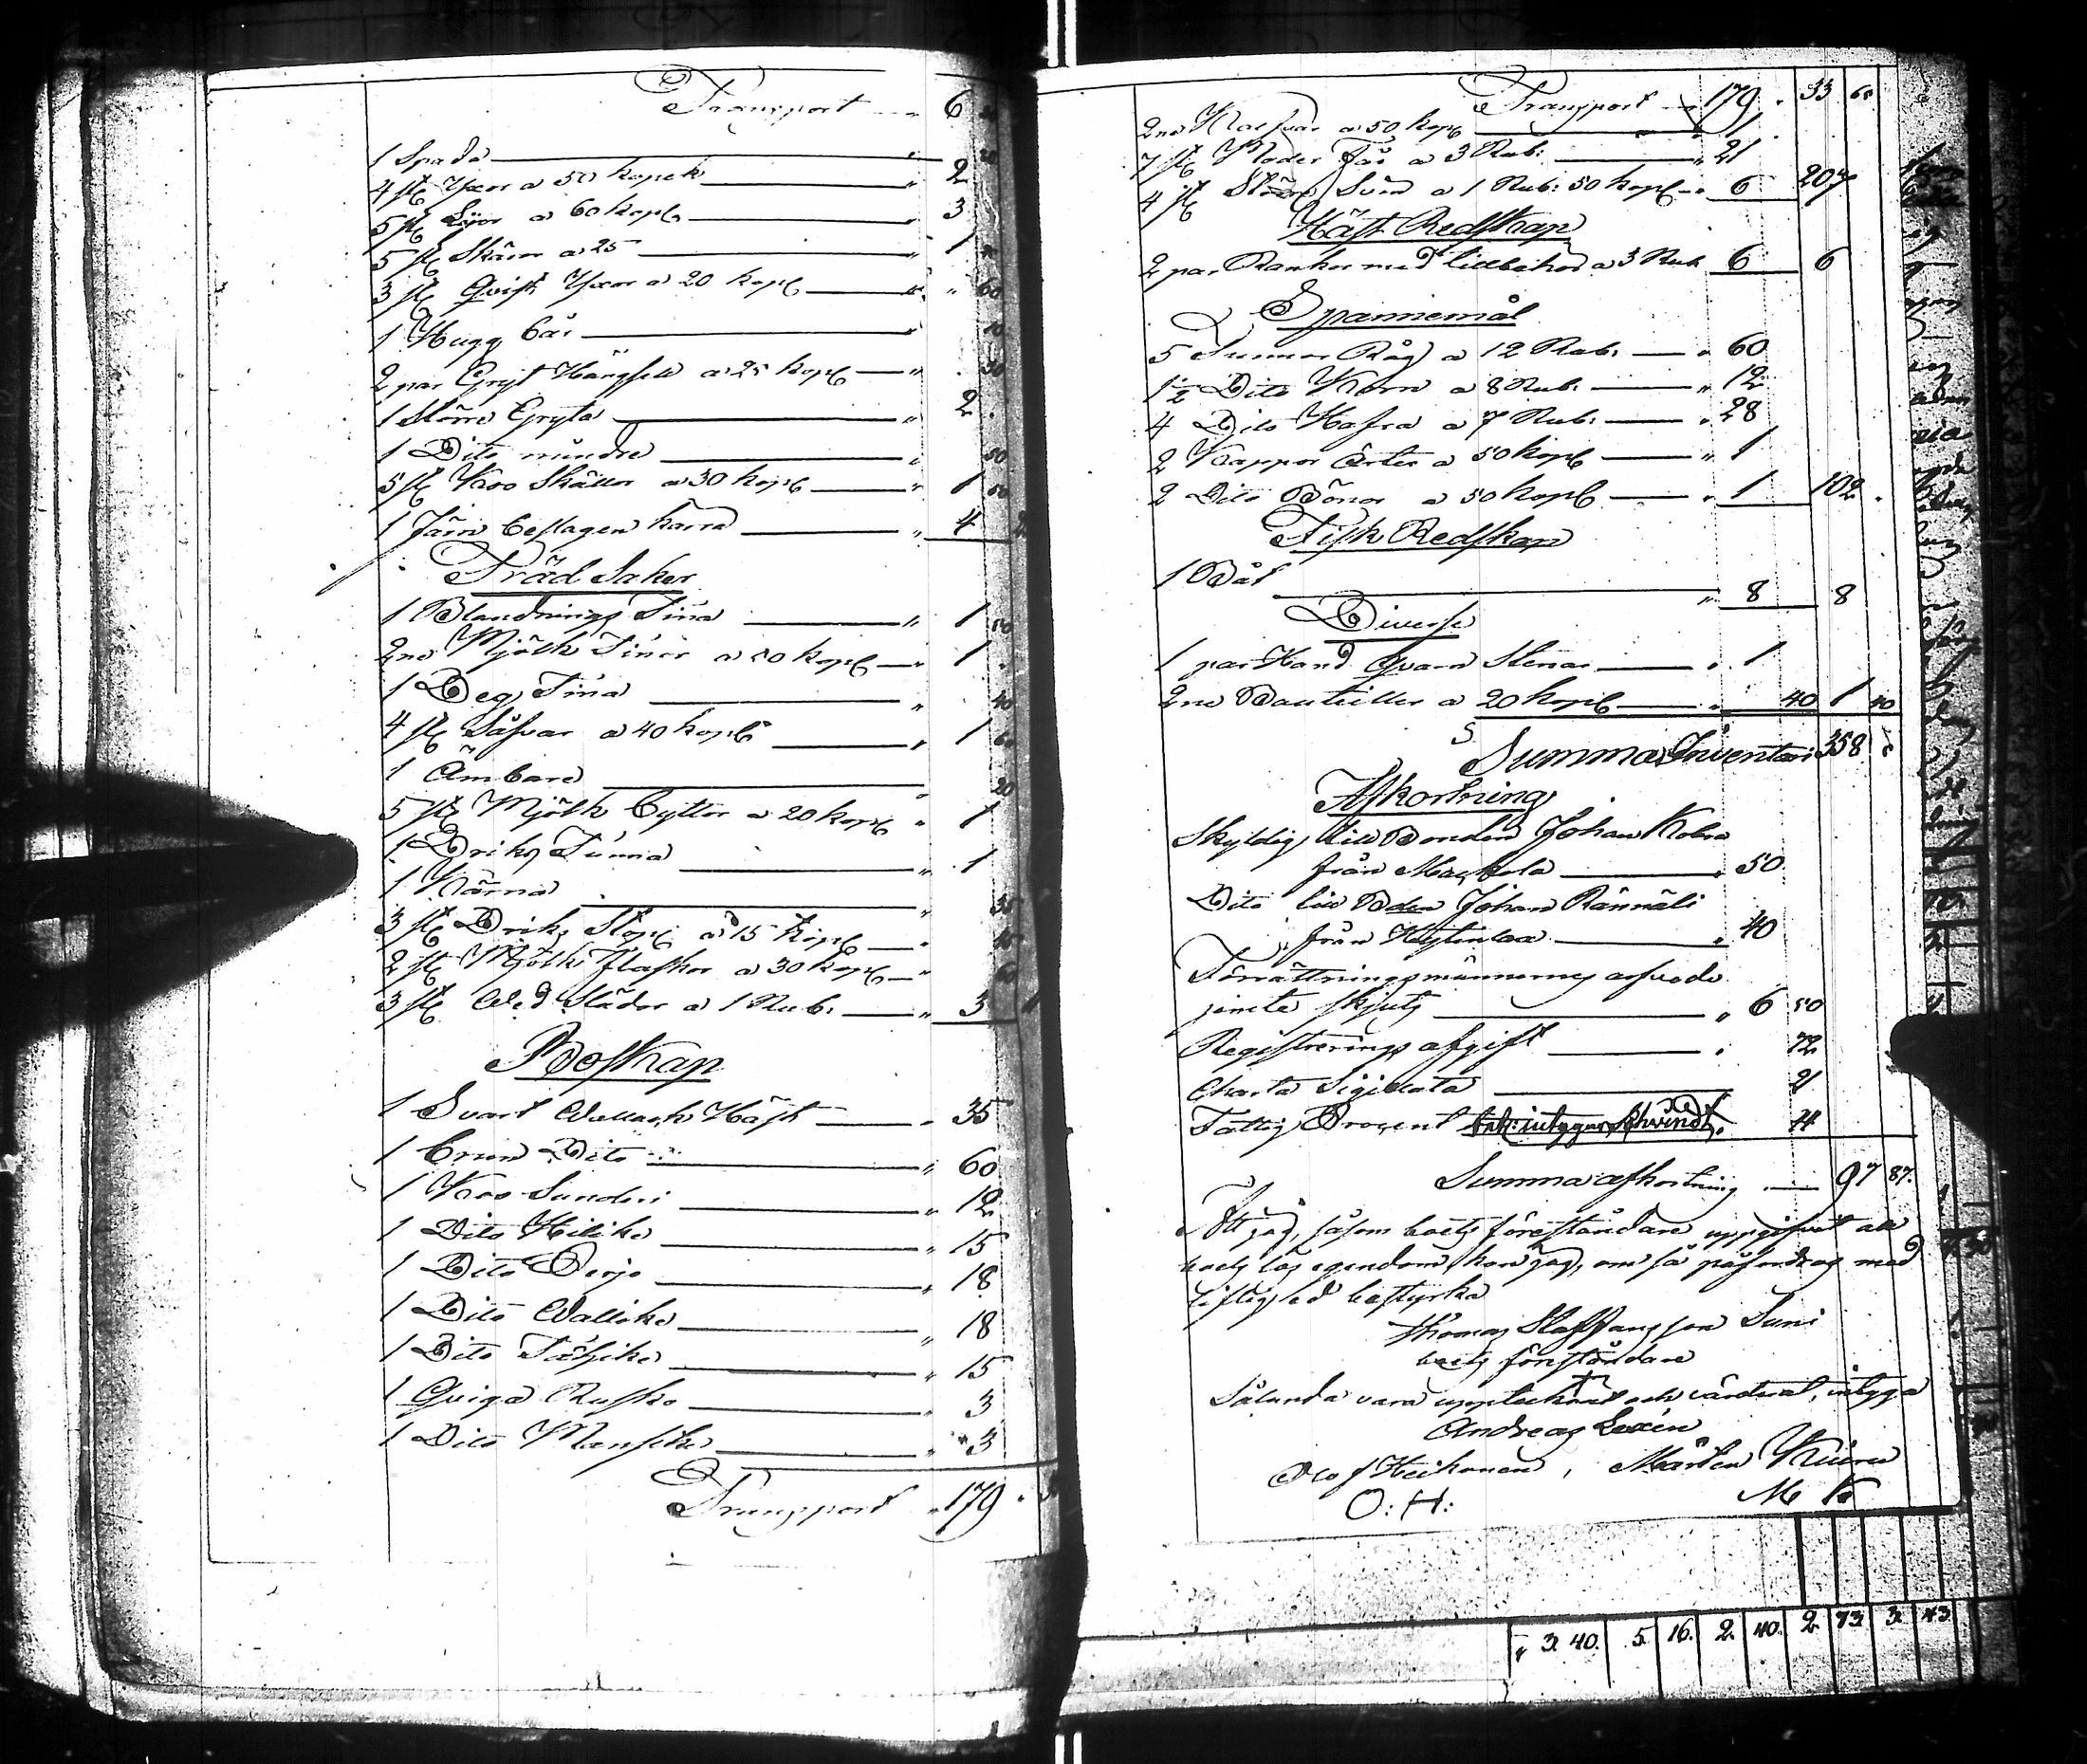 Transport 6
1 Spada 20
4 st Yxor a 50 Kopek 2
5 st Lior a 60 Kop 3
5 st Skäror a 25 1
3 st Qvist Yxor a 20 Kop 60
1 Hugg 
2 par Gryt Hängsell a 25 Kop 50
1 Större Gryta 2
1 Dito mindre 50
5 st Koo Skällor a 30 Kop 1 50
1 Järn beslagen Kärra 4
Träd Saker
1 Blandnings Tina 1 50
2ne Mjölk Tinor a 50 Kop 1
1 Deg Tina 40
4 st Såfvar a 40 Kop 1 60
1 Ämbare 20
5 st Mjölk Byttor a 20 Kop 1
1 Driks Tunna 1
1 Kärna
3 st Driks Stop a 15 Kop 45
2 st Mjölk Flaskor a 30 Kop 60
3 st Ved Slädor a 1 Rub: 3
Boskap
1 Svart Wallack Häst 35
1 brun Dito 60
1 Koo Sundri 12
1 Dito Hilike 15
1 Dito 18
1 Dito Wallike 18
1 Dito 15
1 Qviga Rusko 3
1 Dito Mansike 3
Transport 179
Transport 179 33 60
2ne Kalfvar a 50 Kop 1
7 st Moder Får a 3 Rub: 21
4 st Större Svin a 1 Rub: 50 Kop 6 207
Häst Redskap
2 par Rankor med tillbehör a 3 Rub 6 6
Spannemål
5 Tunnor Råg a 12 Rub: 60
1½ Dito Korn a 8 Rub: 12
4 Dito Hafra a 7 Rub: 28
2 Kappor Ärter a 50 Kop 1
2 Dito Bönor a 50 Kop 1 102
Fisk Redskap
1 Båt 8 8
Diverse
1 par Hand Qvarn Stenar 1
2ne Bouteiller a 20 Kop 40 1 40
Summa Inventarii 358
Afkortning
Skyldig till Bonden Johan
från 50
Dito till Bden Johan Rännäli
från 40
Förrättningsmännernes arfvode
jemte skjuts 6 50
Registrerings afgift 72
Charta Sigillata 21
Fattig Procent 44
Summa afkortning 97 87.
Att jag, såsom boets föreståndare uppgifvit all
boets lös egendom, kan jag, om så påfordras med
liflig ed bestyrka
Thomas Staffansson Suni
boets föreståndare
Sålunda vara upptecknat och värderat, intyga
Andreas Lexén
Olof Heikonen, Mårten Kiuru
O: H: M K
3 40. 5 16. 2 40. 2 73 3 43